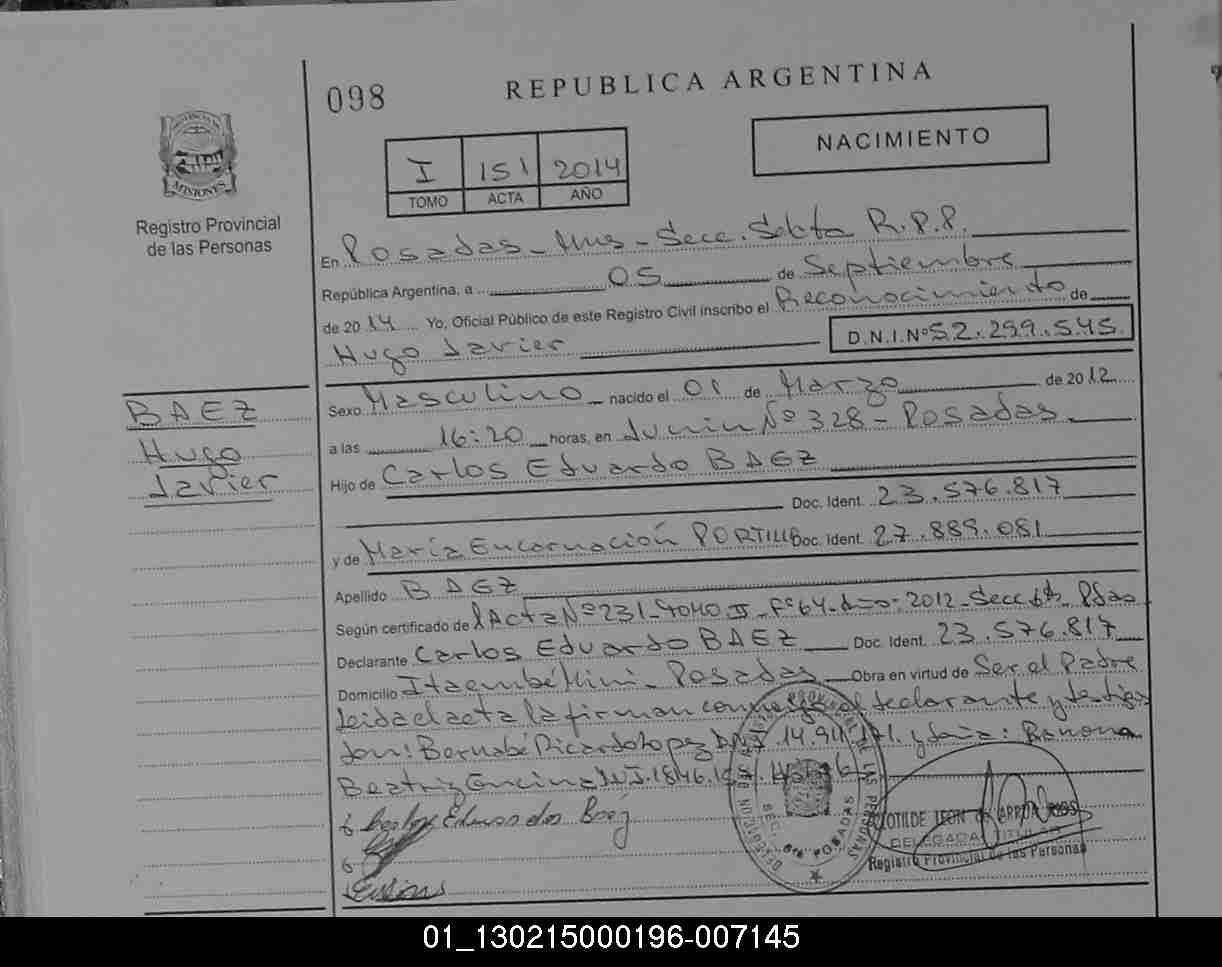 098
REPUBLICA ARGENTINA
NACIMIENTO
I 151 2014
TOMO ACTA AÑO
PROVINCIA DE
MISIONES
Registro Provincial
de las Personas
En Posadas - Mns - Secc. Sexta R.P.P.
República Argentina, a 05 de Septiembre
de 2014 Yo, Oficial Público de este Registro Civil inscribo el Reconocimiento de
Hugo Javier D.N.I.Nº 52.299.545.
BAEZ
Hugo
Javier
Sexo Masculino nacido el 01 de Marzo de 2012
a las 16:20 horas, en Junin Nº 328 - Posadas
Hijo de Carlos Eduardo BAEZ
Doc. Ident. 23.576.817
y de María Encarnación PORTILLO Doc. Ident. 27.889.081
Apellido BAEZ
Según certificado de l Acta Nº 231 - Tomo II - Fº 64 - Año - 2012 - Secc 6ta Pdas
Declarante Carlos Eduardo BAEZ Doc. Ident. 23.576.817
Domicilio Itaembé Mini - Posadas Obra en virtud de Ser el Padre
Leida el acta la firman conmigo el declarante y testigos
don: Bernabé Ricardo Lopez DNI 14.94 y doña: Ramona
Beatriz Encina DNI. 18.146.
Carlos Eduardo Baez
SEC. 6ta POSADAS
LAS PERSONAS
CLOTILDE LEON de ARRUA RIOS
DELEGADA TITULAR
Registro Provincial de las Personas
01_130215000196-007145